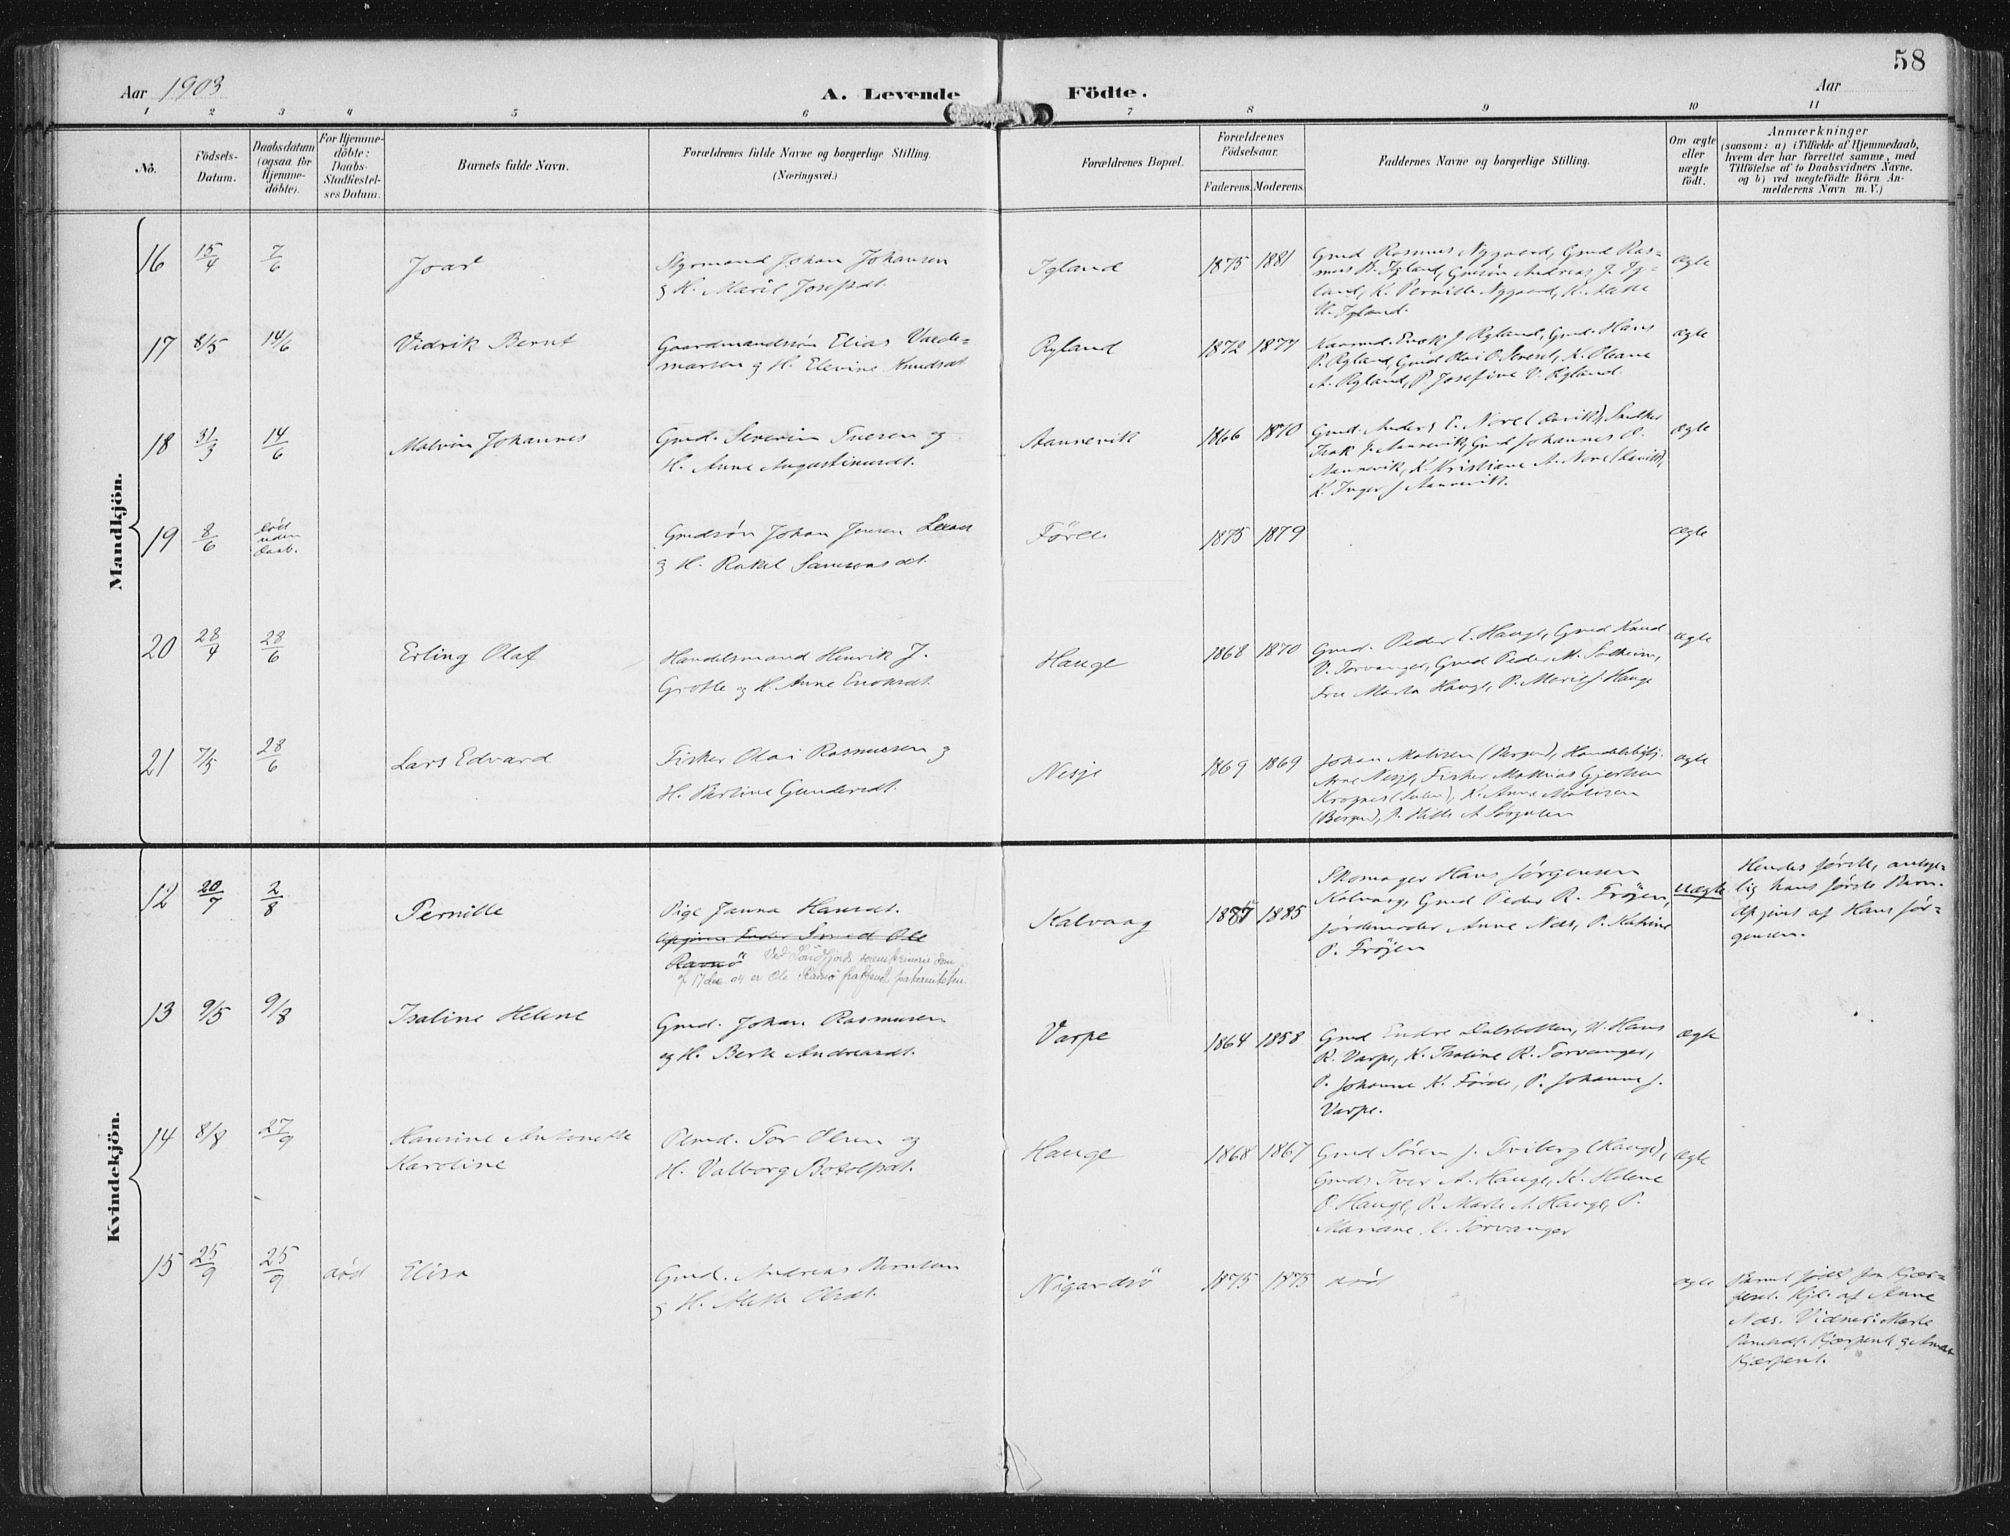 58
Aar 1903
A. Levende Födte.
Aar
1 2 3 4 5 6 7 8 9 10 11
No.
Födsels-
Datum.
Daabsdatum
(ogsaa for
Hjemme-
döbte).
For Hjemme-
döbte:
Daabs-
Stadfæstel-
ses Datum.
Barnets fulde Navn.
Forældrenes fulde Navne og borgerlige Stilling.
(Næringsvei.)
Forældrenes Bopæl.
Forældrenes
Födselsaar.
Faderens. Moderens.
Faddernes Navne og borgerlige Stilling.
Om ægte
eller
uægte
født.
Anmærkninger
(saasom: a) i Tilfælde af Hjemmedaab,
hvem der har forrettet samme, med
Tilföielse af to Daabsvidners Navne,
og b) ved uægtefödte Börn An-
melderens Navn m. V.)
Mandkjön.
16 15/4 7/6 Joar
Styrmand Johan Johansen
og H. Marit Josefsdt.
Igland 1875 1881
Gmd Rasmus Nygaard, Gmd Ras-
mus Igland, Gmdsøn Andreas J. Ig-
land, K. Pernille Nygaard,
Igland.
ægte
17 8/5 14/6 Vidrik Bernt
Gaardmandssøn Elias Valde-
marsen og H. Elevine Knudsdt.
Ryland 1872 1877
J. Ryland, Gmd. Hans
P. Ryland, Gmd Olai O. K. Oleane
A. Ryland, P. Josefine V. Ryland.
ægte
18 31/3 14/6 Malvin Johannes
Gmd. Severin Iversen og
H. Anne Augustinusdt.
Aannevik 1866 1870
Gmd. Anders E. Nore (Davik),
Isak J. Aannevik, Gmd Johannes O.
Aannevik, K. Kristiane A. Nore (Davik),
K. Inger J Aannevik.
ægte
19 8/6 død
uden
Daab.
Gmdsøn Johan Jensen
og H. Rakel Samsonsdt.
Förde 1875 1879
ægte
20 28/4 28/6 Erling Olaf
Handelsmand Henrik J.
Grotle og H. Anne Enoksdt.
Hauge 1868 1870
Gmd. Peder E. Hauge, Gmd Knud
V. Torvanger, Gmd Peder M. Solheim,
Fru Marta Hauge, P. Marie J. Hauge
ægte
21 7/5 28/6 Lars Edvard
Fisker Olai Rasmussen og
H. Pauline Gundersdt.
Nesje 1869 1869
Johan Madsen (Bergen),
Arne Nesje, Fisker Mathias Gjertsen
Krognes (Sulen), K. Anne Madsen
(Bergen), P. Hilda A
ægte
Kvindekjön.
12 20/7 2/8 Pernille
Pige Janna Hansdt.
Opgiven Fader Ole
Ramsö Ved Søndfjords sorenskriveris dom
af 17 dec 04 er Ole Ramsö frakjendt paterniteten.
Kalvaag 1885
Skomager Hans Jørgensen
Kalvaag, Gmd Peder R. Frøjen,
Jordmoder Anne Nes, P. Katrine
P. Frøjen
uægte
Hendes første, antage-
lig hans første Barn.
Opgivet af Hans Jør-
gensen.
13 9/5 9/8 Isaline Helene
Gmd. Johan Rasmusen
og H. Berte Andreasdt.
Varpe 1864 1858
Gmd Endre Dalsbotten, U. Hans
R. Varpe, K. Isaline R. Torvanger,
P. Johanne K. Førde, P. Johanne J.
Varpe.
ægte
14 8/8 27/9 Hansine Antonette
Karoline
Tor Olsen og
H. Valborg Botolfsdt.
Hauge 1868 1867
Gmd Søren J. Tviberg (Hauge),
Gmds Iver A. Hauge, K. Helene
O Hauge, P. Marte A. Hauge, P.
Mariane K. Torvanger
ægte
15 25/9 25/9 død Elisa
Gmd. Andreas Berntsen
og H. Alette Olsdt.
Nigardsö 1875 1875
død
ægte
Barnet født paa
Hjd. af Anne
Nes. Vidner: Marte